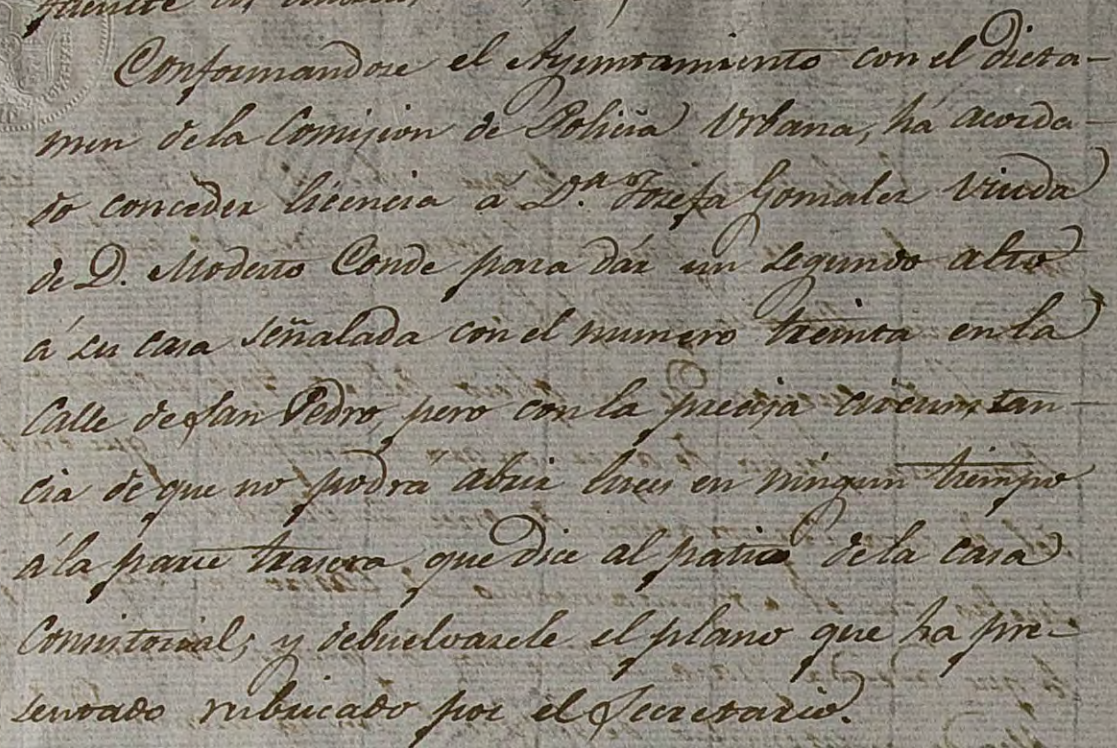 Conformandose el Ayuntamiento con el dicta-
men de la Comision de Policia Urbana, há acorda-
do conceder licencia á D.ª Josefa Gonzalez Viuda
de D. Modesto Conde para dár un segundo alto
á su casa señalada con el numero treinta en la
Calle de San Pedro, pero con la precisa circunstan-
cia de que no podrá abrir luces en ningun tiempo
á la parte trasera que dice al patio de la casa
Consistorial; y debuelvasele el plano que ha pre-
sentado rubricado por el Secretario.